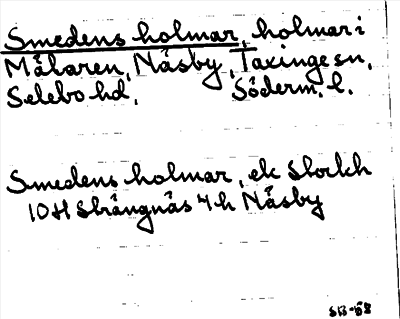 Smedens holmar, holmar i
Mälaren, Näsby, Taxinge sn,
Selebo hd, Söderm. l.
Smedens holmar, ek Storkh
10H Strängnäs 4h Näsby